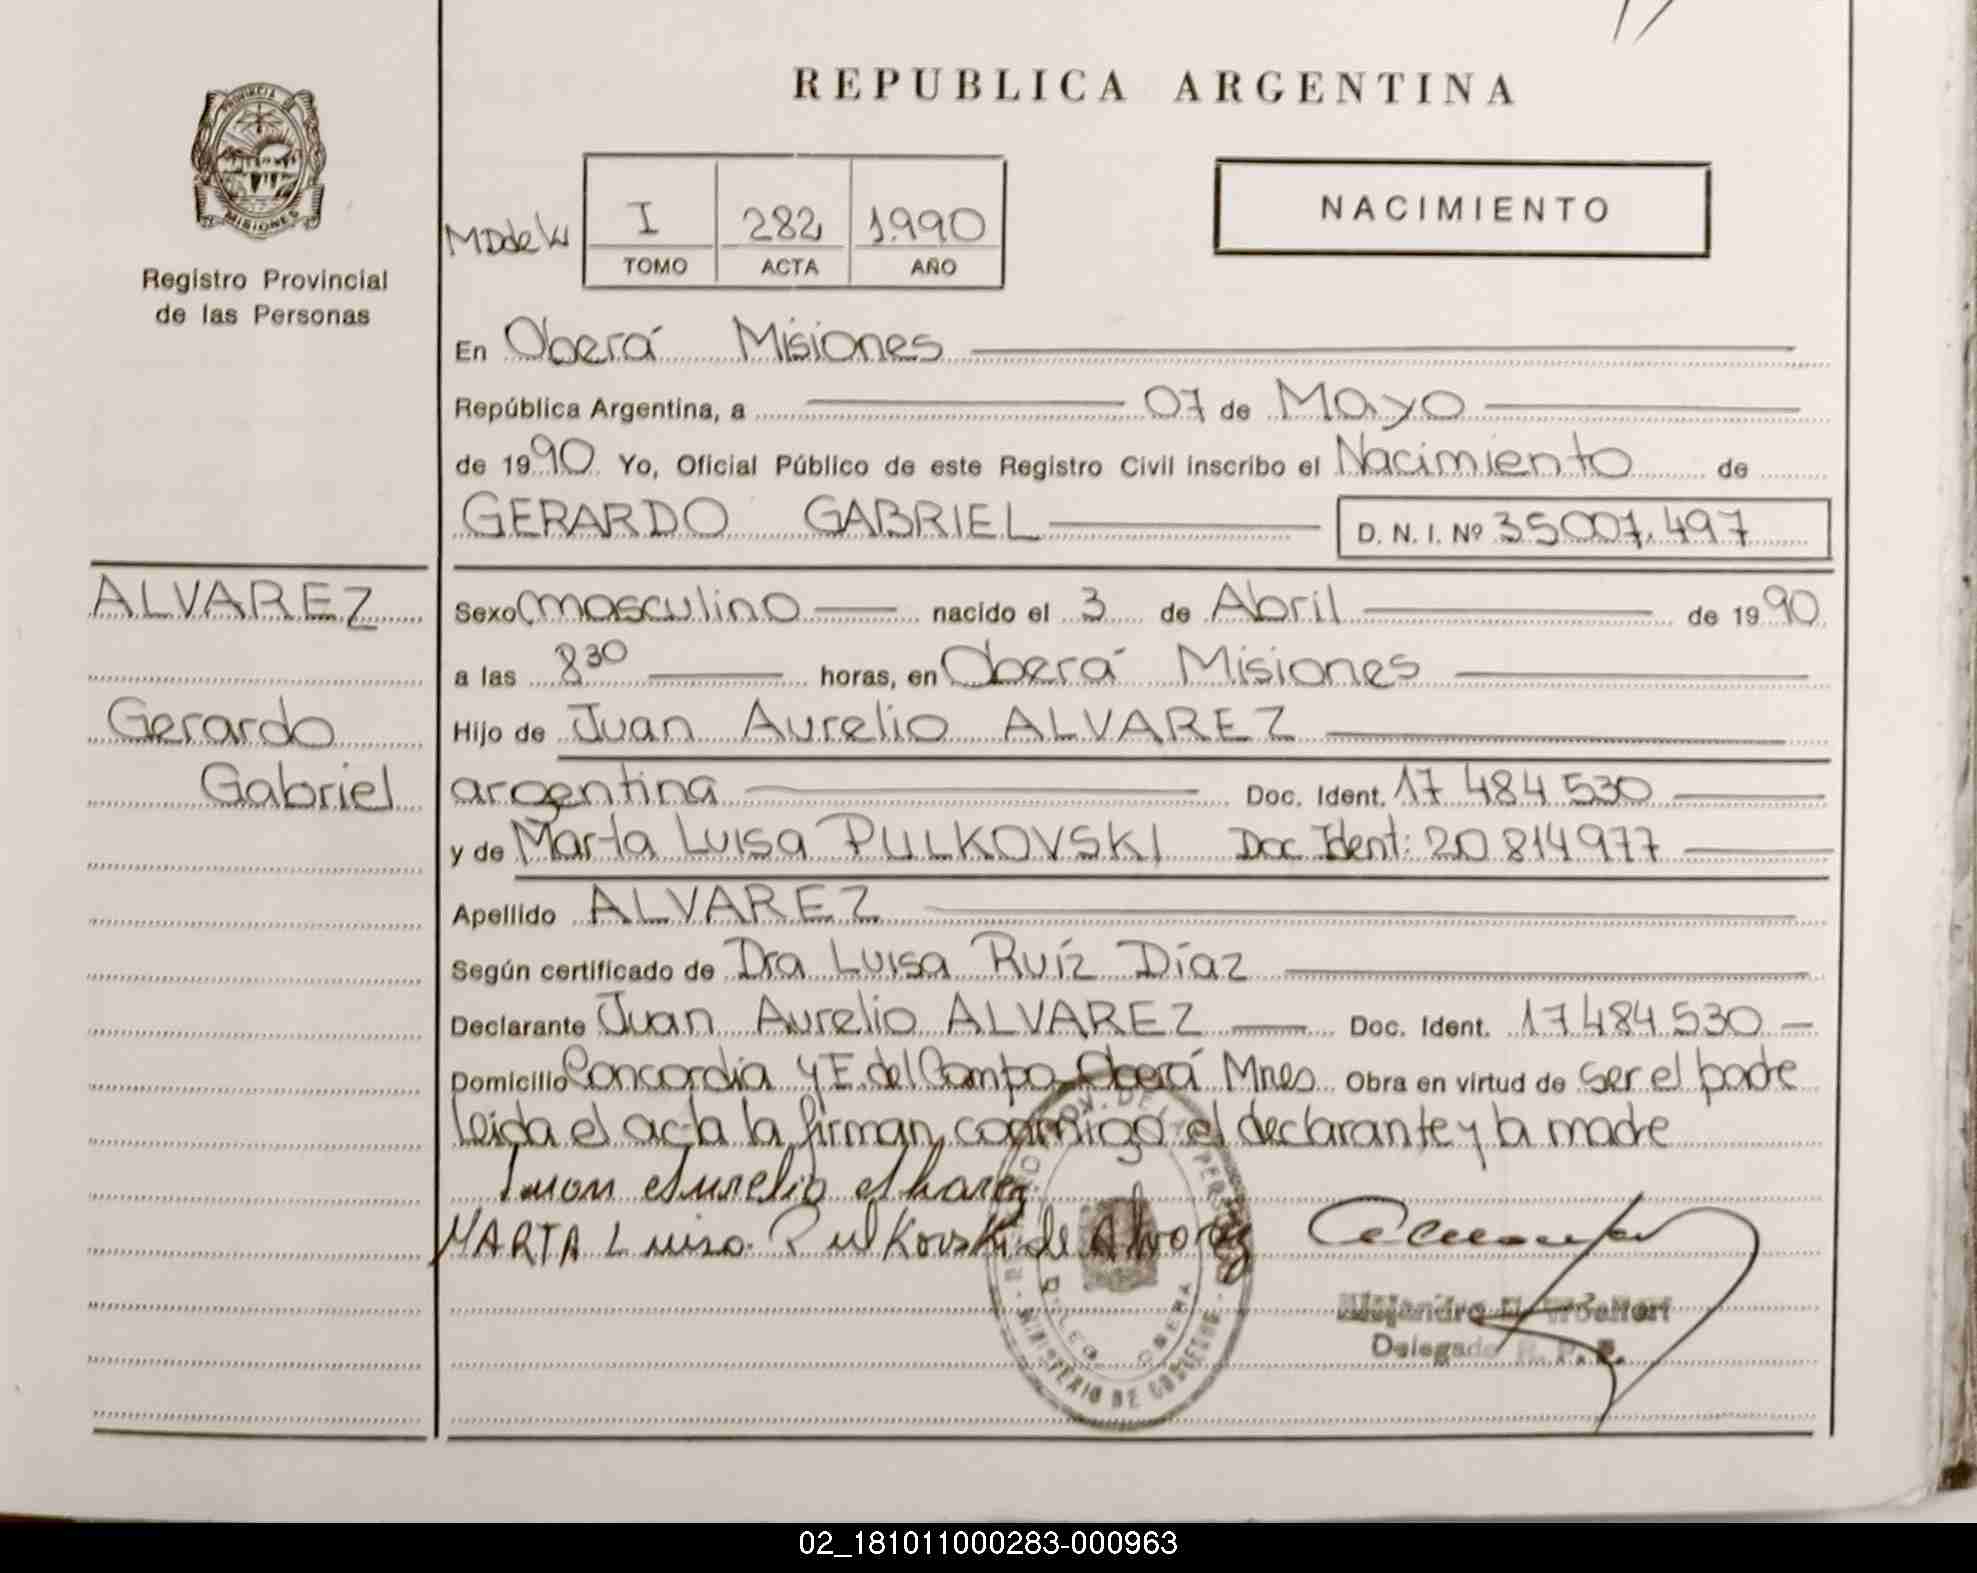 REPUBLICA ARGENTINA
PROVINCIA DE
MISIONES
Registro Provincial
de las Personas
I 282 1990
TOMO ACTA AÑO
NACIMIENTO
En Oberá Misiones
República Argentina, a 07 de Mayo
de 1990 Yo, Oficial Público de este Registro Civil inscribo el Nacimiento de
GERARDO GABRIEL D. N. I. Nº 35007.497
ALVAREZ
Gerardo
Gabriel
Sexo masculino nacido el 3 de Abril de 1990
a las 8 30 horas, en Oberá Misiones
Hijo de Juan Aurelio ALVAREZ
argentina Doc. Ident. 17 484 530
y de Marta Luisa PULKOVSKI Doc Ident: 20 814977
Apellido ALVAREZ
Según certificado de Dra Luisa Ruíz Díaz
Declarante Juan Aurelio ALVAREZ Doc. Ident. 17484530
Domicilio Concordia y E. del Campo Oberá Mnes Obra en virtud de ser el padre
leida el acta la firman conmigo el declarante y la madre
Juan Aurelio Alvarez
MARTA Luisa Pulkovski de Alvarez
MINISTERIO DE GOBIERNO
Delegado R. P. P.
02_181011000283-000963